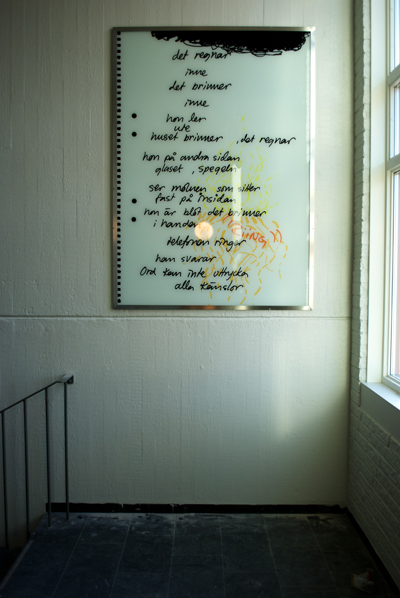 det regnar
inne
det brinner
inne
hon ler
ute
huset brinner, det regnar
hon på andra sidan
glaset, spegeln
ser molnen som sitter
fast på insidan
hon är blöt det brinner
i handen
RING
telefonen ringer
hon svarar
Ord kan inte uttrycka
alla känslor